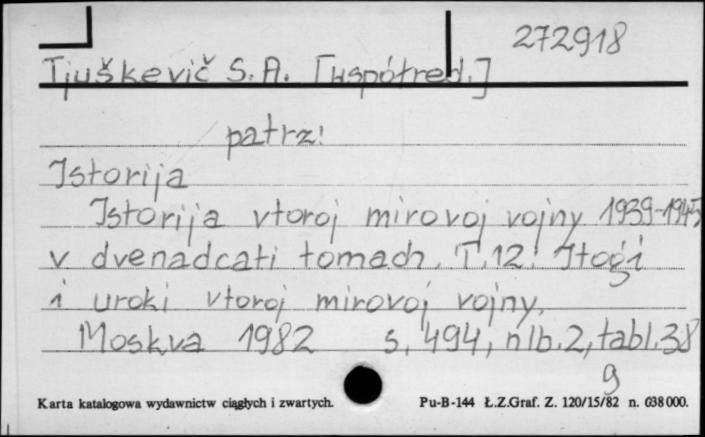 272918
Tjuškevič S.A. [współred.]
patrz:
Istorija
Istorija vtoroj mirovoj vojny 1939-1945
v dvenadcati tomach. T.12: Itogi
i uroki vtoroj mirovoj vojny.
Moskva 1982 s. 494, nlb. 2, tabl. 38
g
Karta katalogowa wydawnictw ciągłych i zwartych. Pu-B-144 Ł.Z.Graf. Z. 120/15/82 n. 638000.